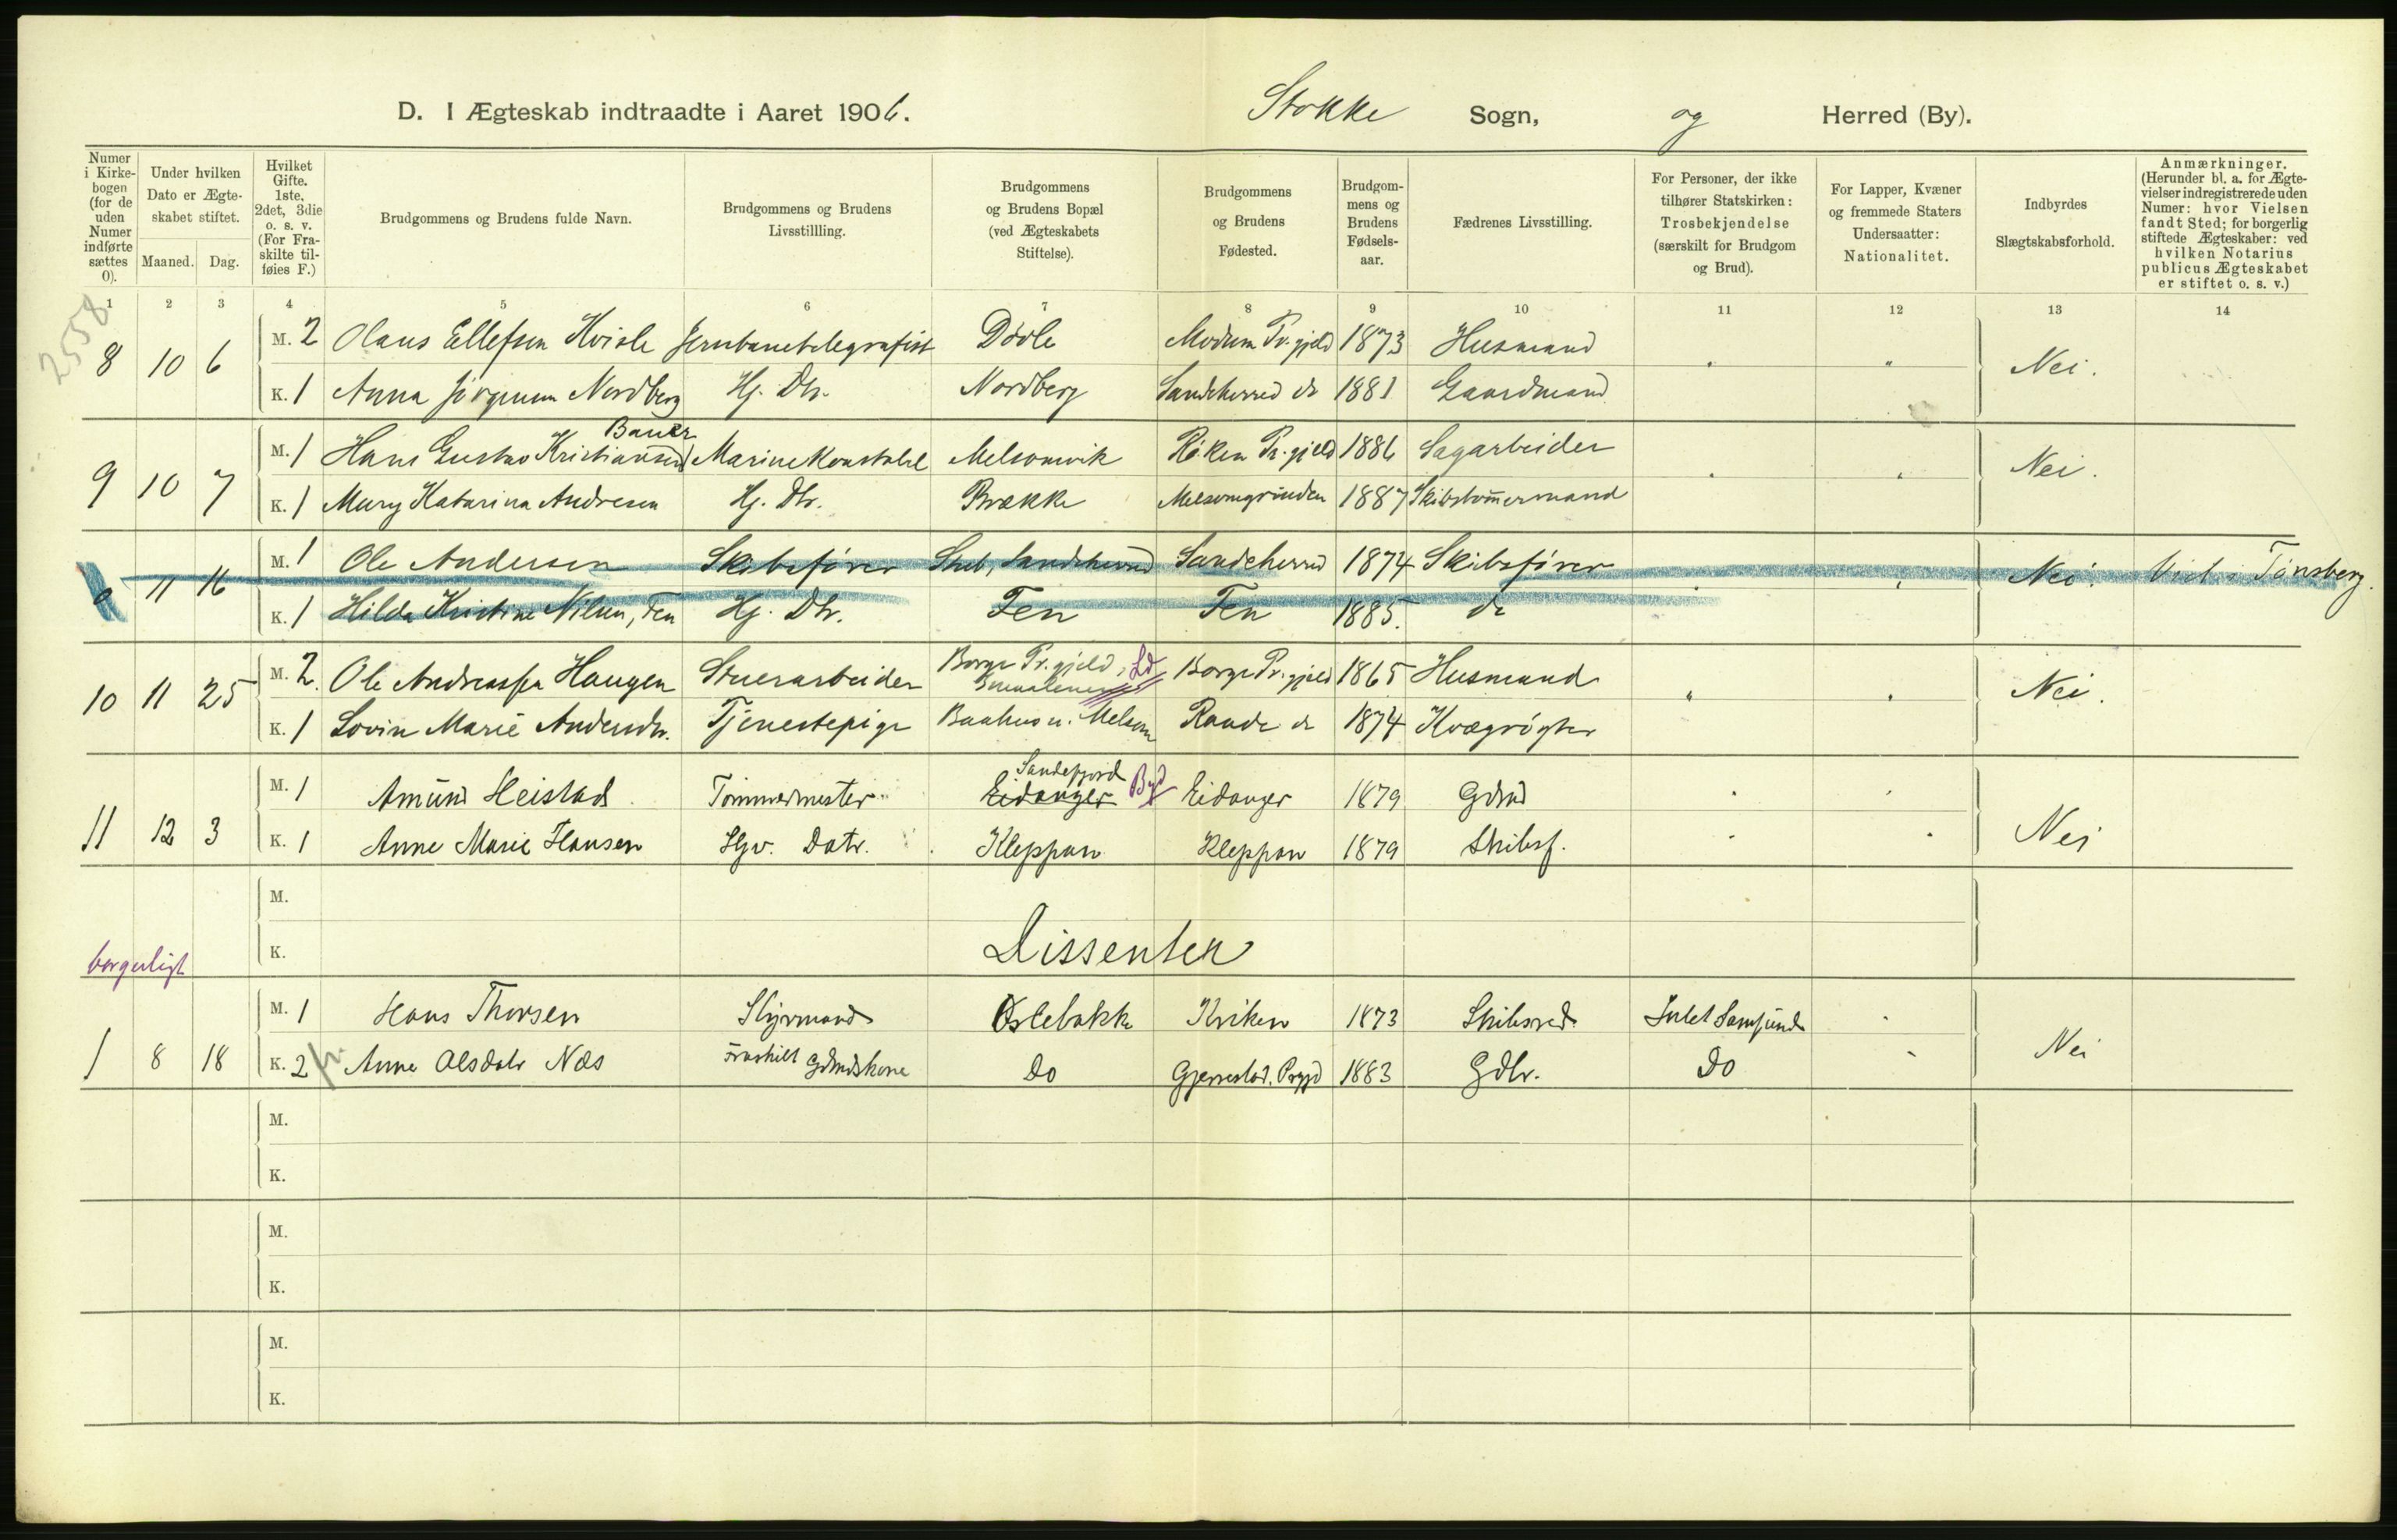 D. I Ægteskab indtraadte i Aaret 1906. Stokke Sogn, og Herred (By).
Numer i Kirkebogen (for de uden Numer indførte sættes 0).
Under hvilken Dato er Ægteskabet stiftet.
Maaned. Dag.
Hvilket Gifte. 1ste, 2det, 3die o. s. v. (For Fraskilte tilføies F.)
Brudgommens og Brudens fulde Navn.
Brudgommens og Brudens Livsstillling.
Brudgommens og Brudens Bopæl (ved Ægteskabets Stiftelse).
Brudgommens og Brudens Fødested.
Brudgommens og Brudens Fødselsaar.
Fædrenes Livsstilling.
For Personer, der ikke tilhører Statskirken: Trosbekjendelse (særskilt for Brudgom og Brud).
For Lapper, Kvæner og fremmede Staters Undersaatter: Nationalitet.
Indbyrdes Slægtskabsforhold.
Anmærkninger. (Herunder bl. a. for Ægtevielser indregistrerede uden Numer: hvor Vielsen fandt Sted; for borgerlig stiftede Ægteskaber: ved hvilken Notarius publicus Ægteskabet er stiftet o. s. v.)
1 2 3 4 5 6 7 8 9 10 11 12 13 14
2558
8 10 6 M. 2 Olaus Ellefsen Kvisle Jernbanetelegrafist DØvle Modum Pr. gjeld 1873 Husmand " " Nei.
K. 1 Anna Jørginea Nordberg Hj. Dtr. Nordberg Sandeherred do 1881 Gaardmand
Bauer
9 10 7 M. 1 Hans Gustav Kristiansen Marinekonstabel Melsomvik Røken Pr. gjeld 1886 Sagarbeider " " Nei.
K. 1 Mary Katarina Andresen Hj. Dtr. Brække Melsomgrinden 1887 Skibstom̄ermand
0 11 16 M. 1 Ole Andersen Skibsfører Stub, Sandeherred Sandeherred 1874 Skibsfører " " Nei. Viet i Tønsberg.
K. 1 Hilda Kristine Nilsen, Fen Hj. Dtr. Fen Fen 1885. do
10 11 25 M. 2. Ole Andreassen Haugen Stuerarbeider Borge Pr. gjeld, Ld Smaalenene Borge Pr. gjeld 1865 Husmand " " Nei.
K. 1 Lovise Marie Andersdr. Tjenestepige Bauhus u. Melsom Raade do 1874 Kvægrøgter
Sandefjord
11 12 3 M. 1 Amund Heistad Tømmermester Eidanger By Eidanger 1879 Gdmd " " Nei
K. 1 Anne Marie Hansen Hjv. Datr. Kleppan Kleppan 1879 Skibsf. " "
M.
K. Dissenter
borgerligt
1 8 18 M. 1 Hans Thorsen Styrmand Østebakke Kviken 1873 Skibsred. Intet Samfund " Nei
K. 2 fr. Anne Olsdatr Næs Fraskilt Gdmdskone Do Gjerrestad. Prgjd 1883 Gdbr. Do "
M.
K.
M.
K.
M.
K.